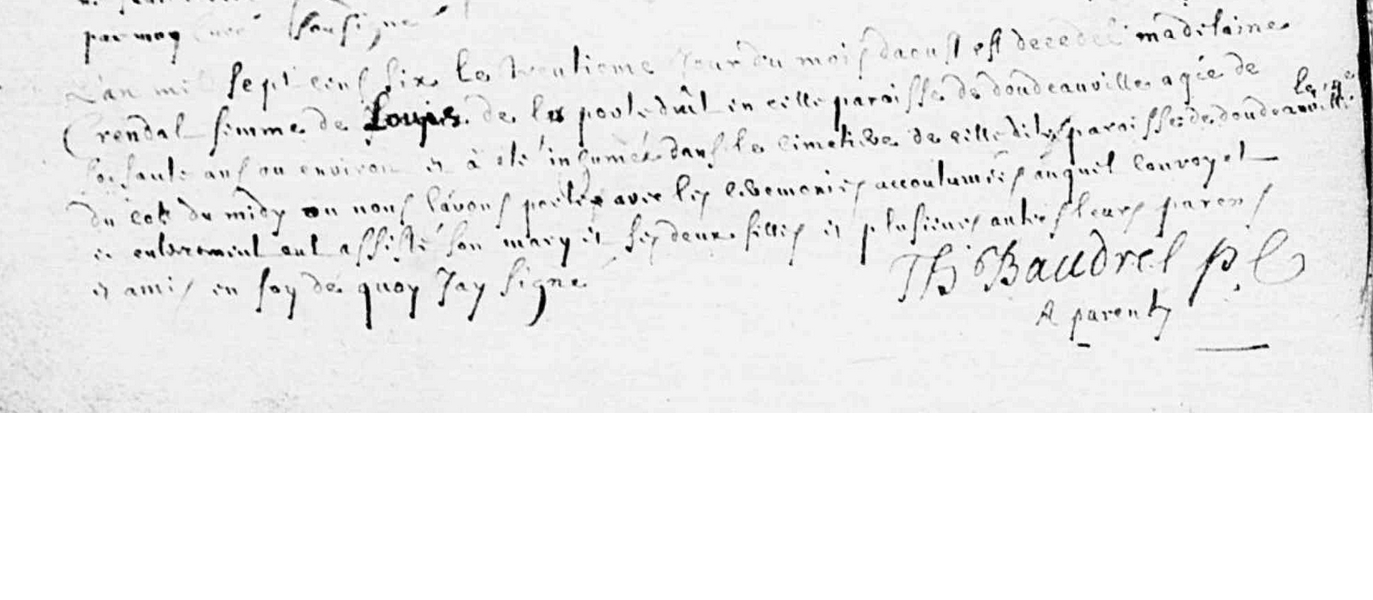 par moy curé soussigné
L'an mil sept cens six le trentieme Jour du mois daoust est decedée madelaine
Crendal femme de Louis de la poterduit en cette paroisse de doudeauville agée de
soisante ans ou environ et à eté inhumée dans le cimetiere de cette dite paroisse de doudeauville
le 31e
du coté du midy ou nous l'avons portée avec les ceremonies accoutumées auquel convoy et
et enterrement ont assisté son mary et ses deux filles et plusieurs autres leurs parens
et amis en foy de quoy Jay signé
Th Baudrel p. C
A parenty